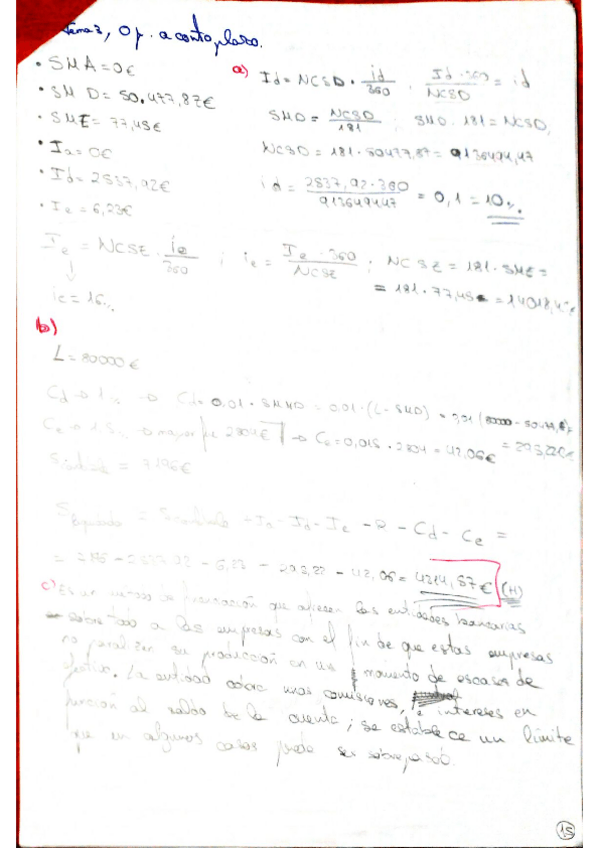 tema 3, Op. a corto plazo.
• SMA = 0€
• SMD = 50.477,87€
• SME = 77,45€
• Ia = 0€
• Id = 2837,92€
• Ie = 6,23€
a) Id = NCSD · id/360 . Id·360/NCSD = id
SMD = NCSD/181 ; SMD · 181 = NCSD,
NCSD = 181 · 50477,87 = 9136494,47
id = 2837,92·360/913649447 = 0,1 = 10%.
Ie = NCSE · ie/360 ; ie = Ie·360/NCSE ; NCSE = 181 · SME =
↓
= 181 · 77,45 = 14018,45
ie = 16%
b)
L = 80000€
Cd → 1% → Cd = 0,01 · SMND = 0,01 · (L - SMD) = 0,01 (80000 - 50477,87)
= 295,22€
Ce → 1,5% → mayor fue 2804€ → Ce = 0,015 · 2804 = 42,06€
= 7196€
= - Ia - Id - Ie - R - Cd - Ce =
= 7196 - 2837,92 - 6,23 - - 42,06 = 4214,87€ (H)
c) Es un de financiación que ofrecen las entidades bancarias
sobre todo a las empresas con el fin de que estas empresas
no paralicen su producción en un momento de escasa de
. La entidad cobra unas comisiones, e intereses en
función al saldo de la cuenta; se establece un límite
que en algunos casos puede ser sobrepasado.
15